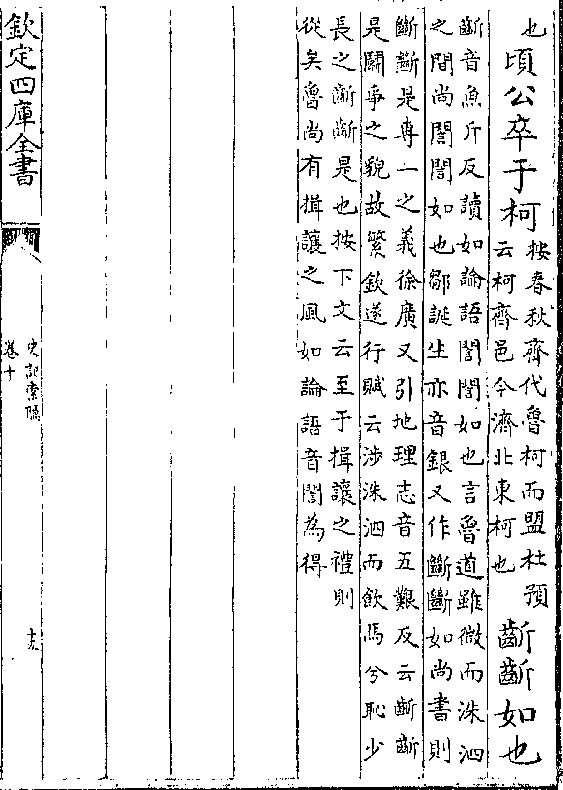 也頃公卒于柯
按春秋齊代魯柯而盟杜預
云柯齊邑今濟北東柯也
齗齗如也
齗音魚斤反讀如論語誾誾如也言魯道雖微而洙泗
之間尚誾誾如也鄒誕生亦音銀又作斷斷如尚書則
斷斷是專一之義徐廣又引地理志音五艱反云齗齗
是鬭爭之貌故繁欽遂行賦云涉洙泗而飲馬兮恥少
長之齗齗是也按下文云至于揖讓之禮則
從矣魯尚有揖讓之風如論語音誾為得
欽定四庫全書
史記索隱
卷十